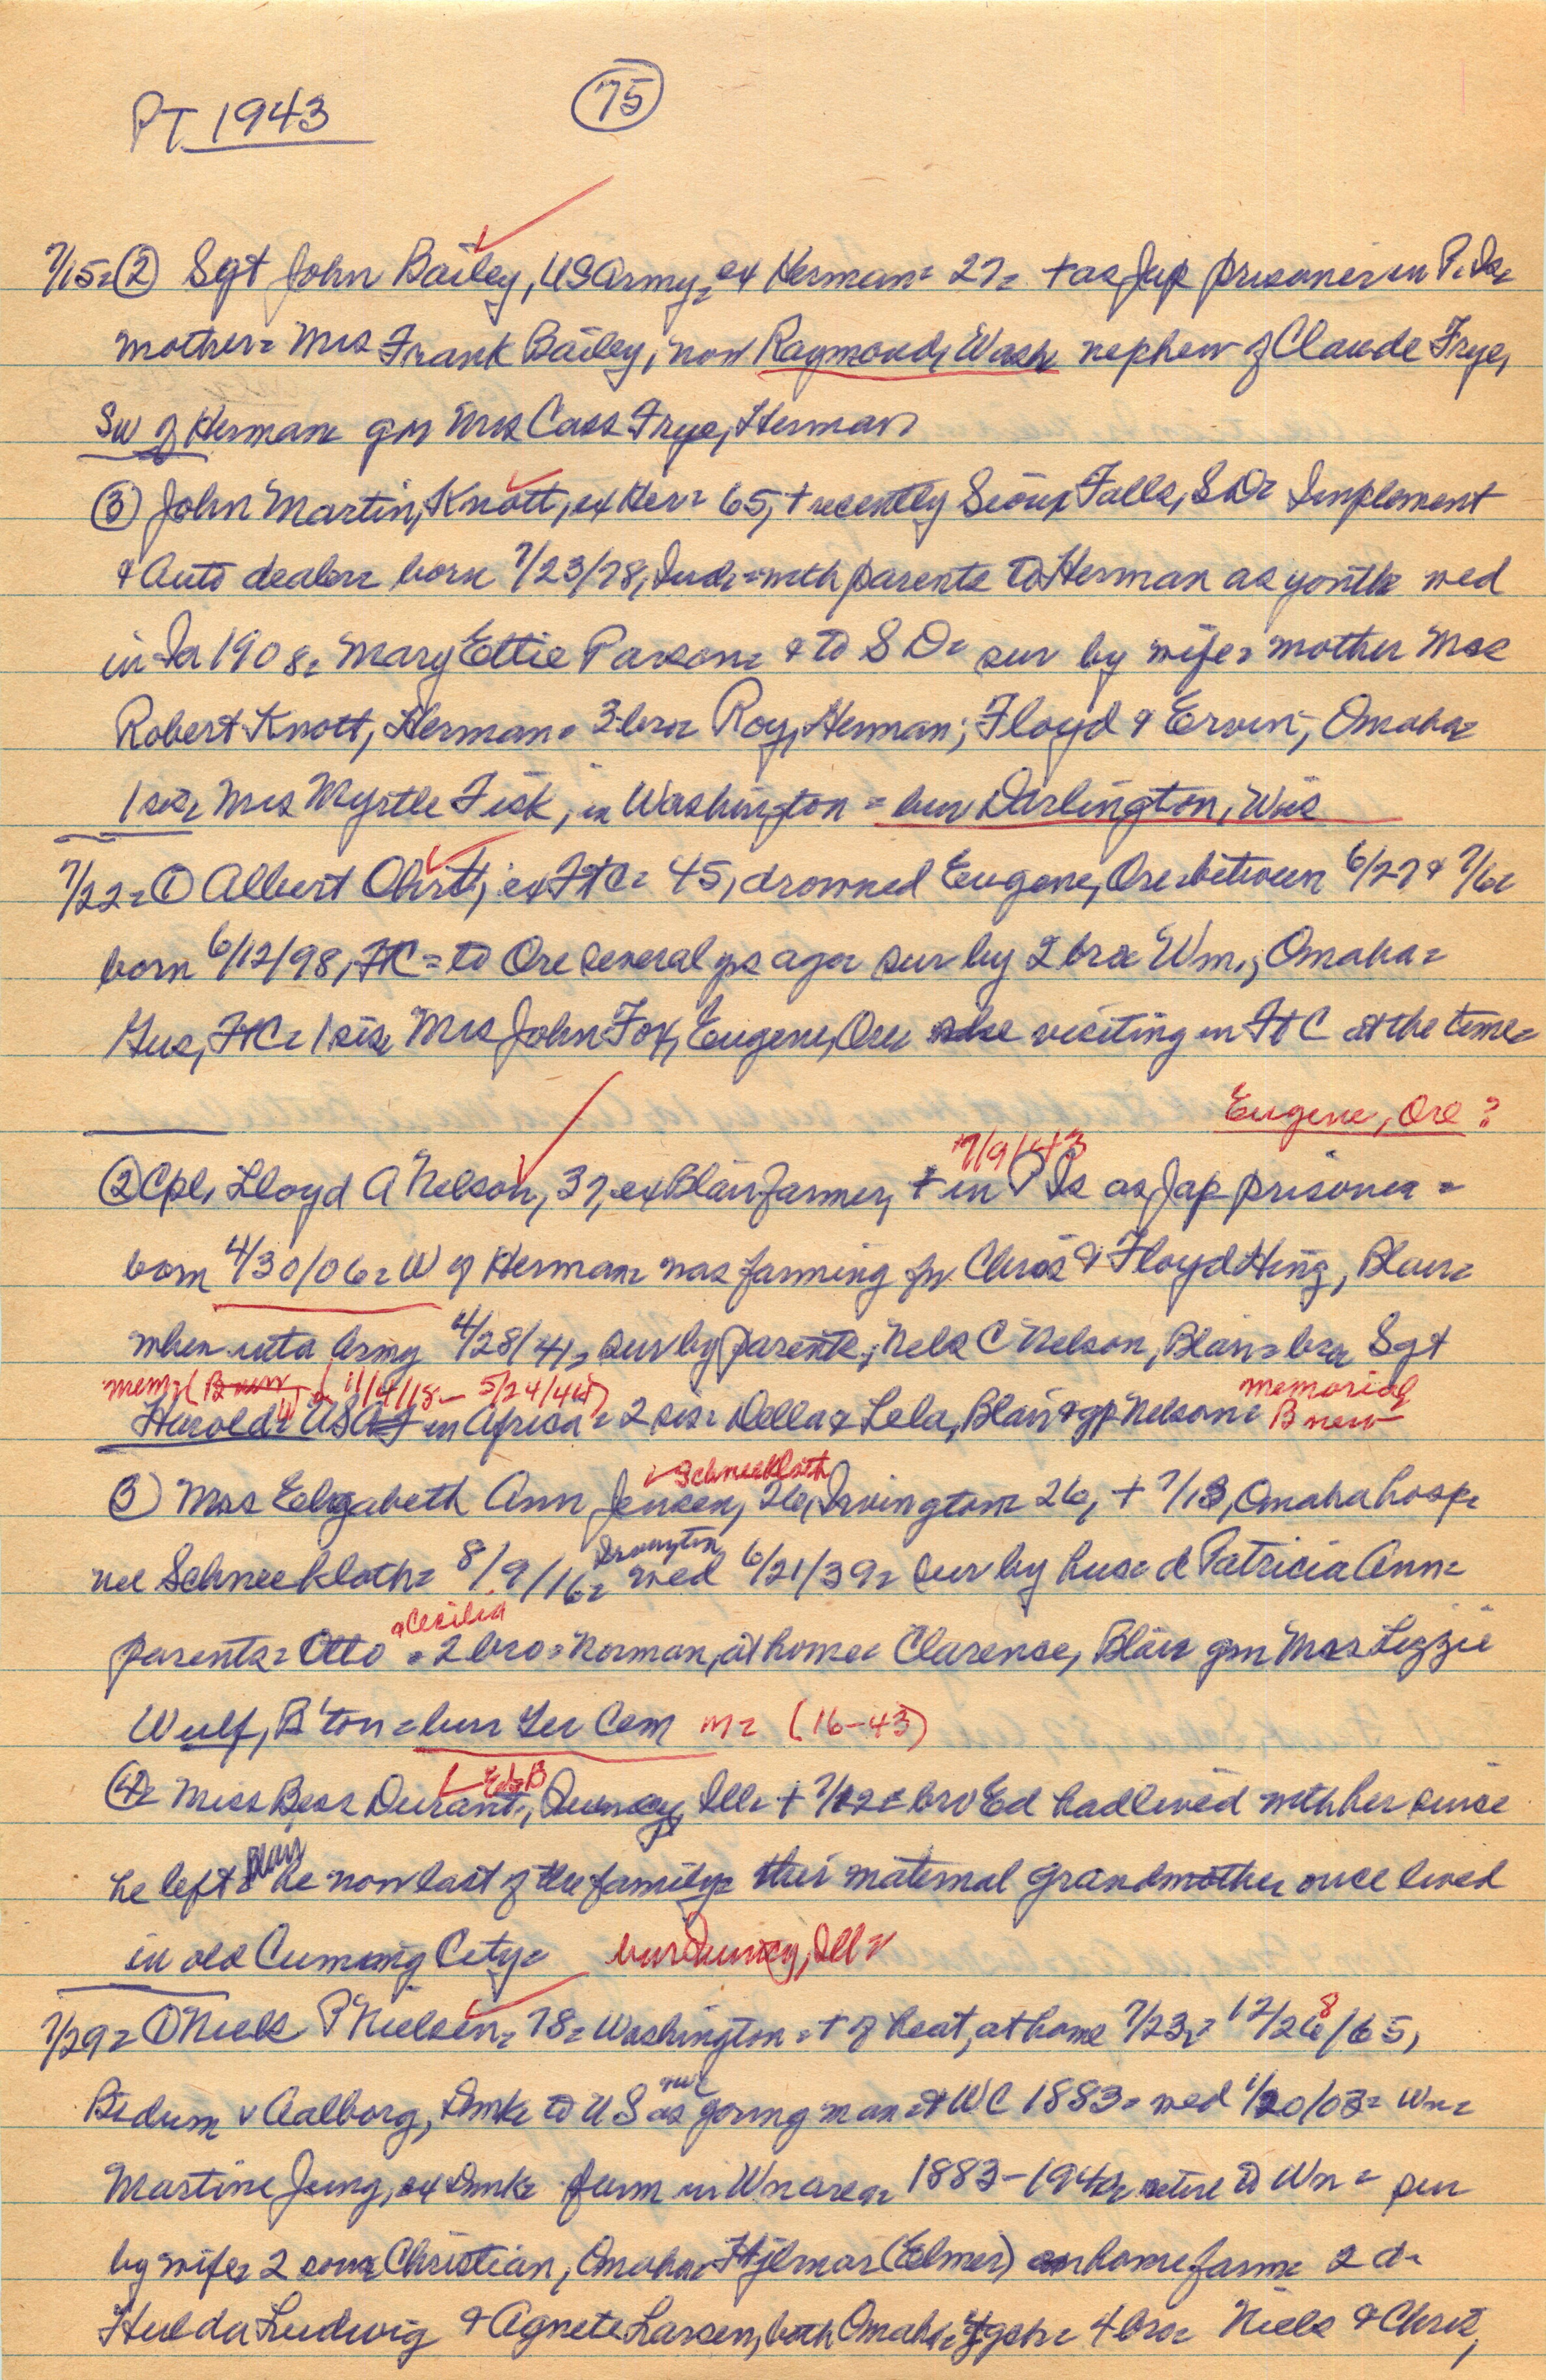 PT 1943
75
7/15= ② Sgt John Bailey, US Army, ex Herman= 27= + as Jap prisoner in P. Is=
mother= Mrs Frank Bailey, now Raymond, Wash nephew of Claude Frye,
SW of Herman gm Mrs Cass Frye, Herman
③ John Martin Knott, ex Her= 65, + recently Sioux Falls, SD= Implement
& Auto dealer= born 7/23/78, Ind= with parents to Herman as youth= wed
in Ia 1908= Mary Ettie Parson= & to S D= sur by wife= mother Mrs
Robert Knott, Herman= 3 bro= Roy, Herman; Floyd & Ervin, Omaha=
1 sis= Mrs Myrtle Fisk, in Washington = bur Darlington, Wis
7/22= ① Albert Ohrt, ex FtC= 45, drowned Eugene, Ore between 6/27 & 7/6=
born 6/12/98, FtC = to Ore several ys ago= sur by 2 bro= Wm, Omaha=
Gus, FtC= 1 sis= Mrs John Fox, Eugene, Ore visiting in Ft C at the time=
Eugene, Ore ?
7/9/43
② Cpl, Lloyd A Nelson, 37, ex Blair farmer, + in P Is as Jap prisoner =
born 4/30/06= W of Herman= was farming for Chris & Floyd Hing, Blair=
when into Army 4/28/41= sur by parents, Nels C Nelson, Blair= bro Sgt
mem (11/4/18 - 5/24/44) memorial
Harold= USA in Africa = 2 sis= Della & Lela, Blair & gp Nelson= B new
Schneekloth
③ Mrs Elizabeth Ann Jensen, 26, Irvington= 26, + 7/13, Omaha hosp=
Irvington
nee Schneekloth= 8/9/16= wed 6/21/39= sur by hus= d Patricia Ann=
& Cecilia
parents= Otto = 2 bro= Norman, at home= Clarence, Blair gm Mrs Lizzie
Wulf, B'ton = bur Ger Cem m= (16-43)
Ed= B
④= Miss Bess Durant, Quincy, Ill= + 7/12= bro Ed had lived with her since
Blair
he left & he now last of the family= their maternal grandmother once lived
in old Cuming City= bur Quincy, Ill=
8
7/29= ① Niels P Nielsen= 78= Washington = + of heat, at home 7/23= 12/26/65,
Bedum v Aalborg, Dmk= to US as young man & WC 1883= wed 1/20/03= Wn=
Martine Jung, ex Dmk= farm in Wn area= 1883-194 retire to Wn = sur
by wife= 2 sons Christian, Omaha= Hjlmar (Elmer) on home farm= 2 d=
Hulda Ludwig & Agnete Larsen, both Omaha= gch= 4 bro= Niels & Chris,